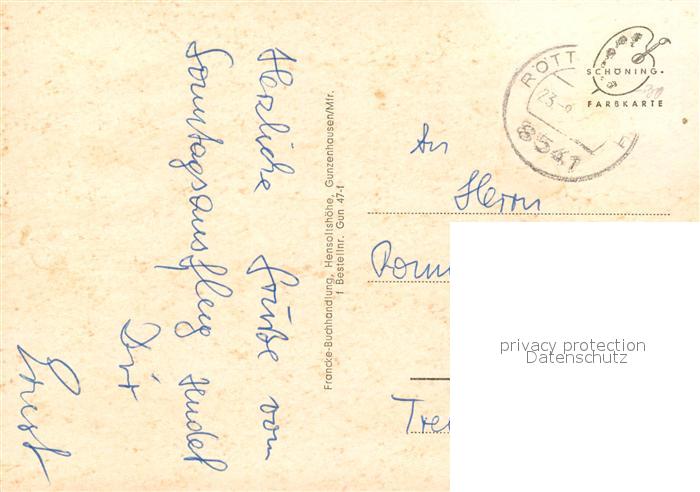 Herzliche Grüße vom
Sonntagsausflug sendet
Dir
Ernst
Francke-Buchhandlung, Hensoltshöhe, Gunzenhausen/Mfr.
f Bestellnr. Gun 47-f
RÖTT
23.
8541
SCHÖNING
FARBKARTE
An
Herrn
privacy protection
Datenschutz